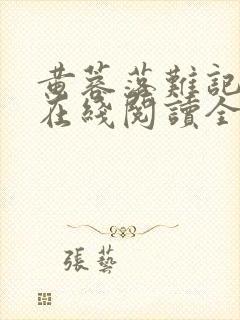 黄蓉落難記
在綫閱讀全
張藝